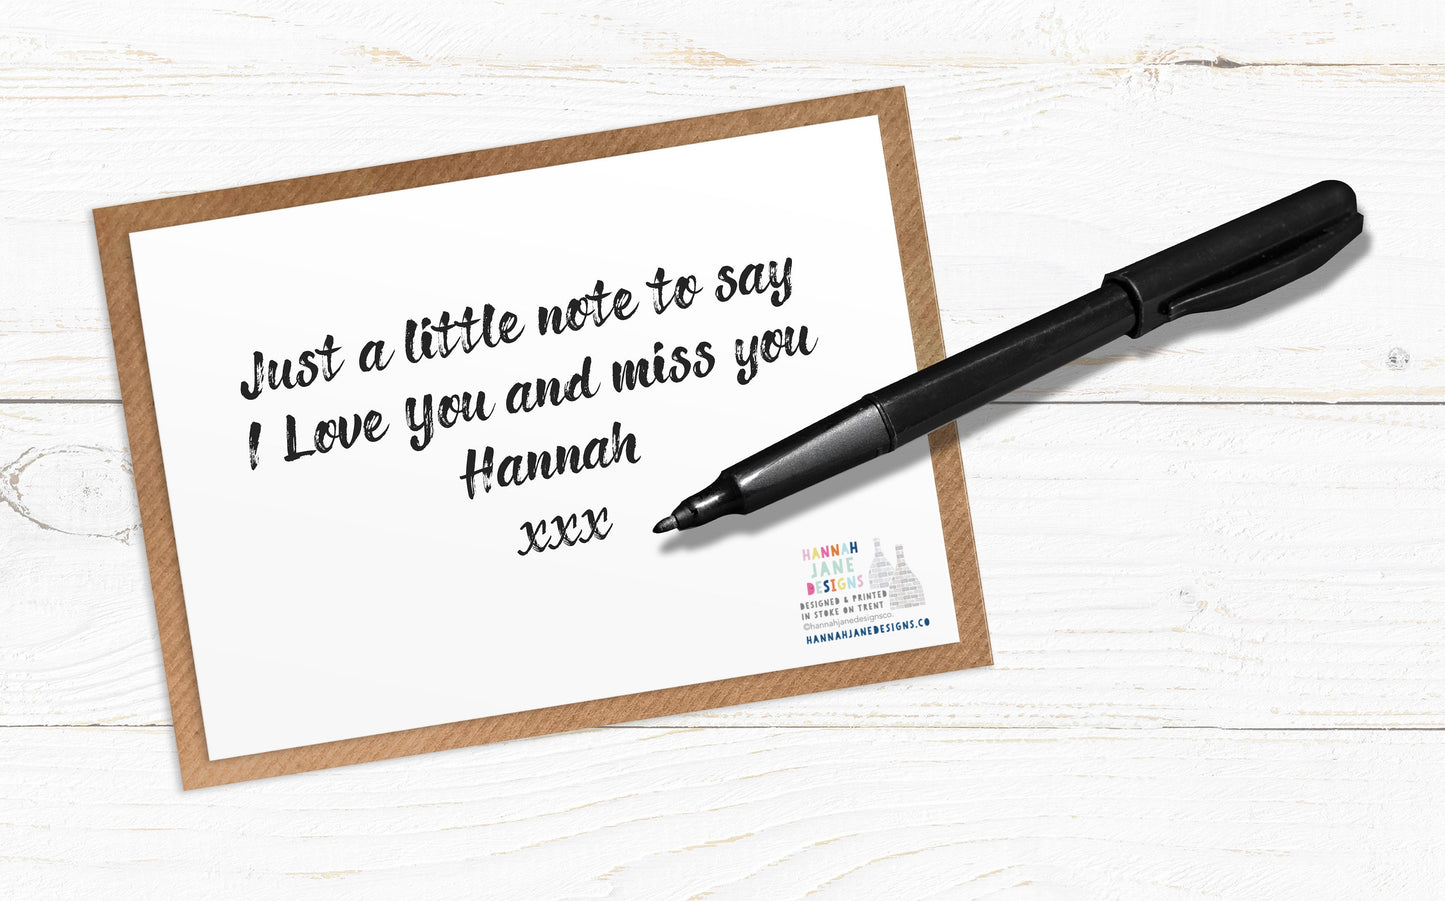 Just a little note to say
I Love you and miss you
Hannah
xxx
HANNAH
JANE
DESIGNS
DESIGNED & PRINTED
IN STOKE ON TRENT
©hannahjanedesignsco.
HANNAHJANEDESIGNS.CO